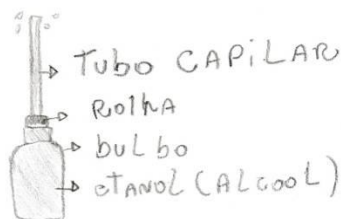 Tubo CAPiLAR
Rolha
bulbo
etANOL (ALcooL)